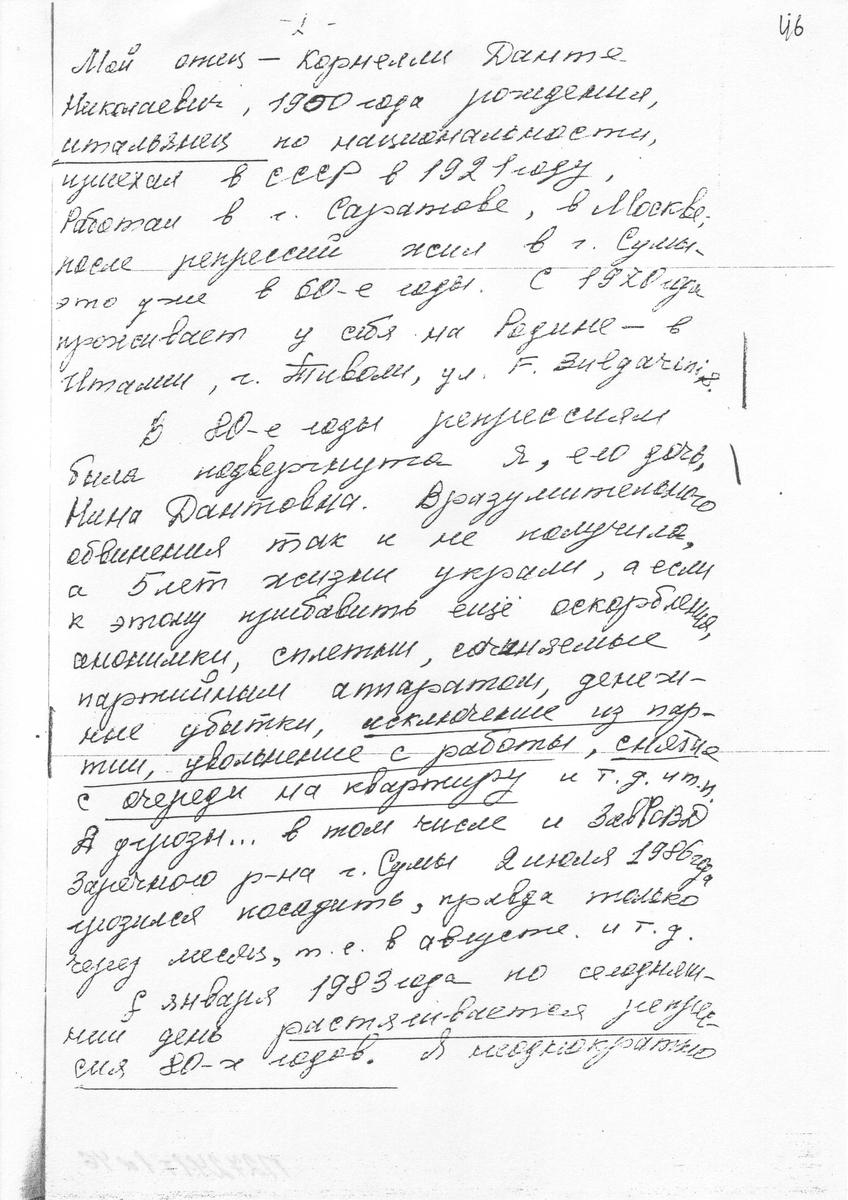 - 2 -
46
Мой отец — Корнелли Данте
Николаевич, 1900 года рождения,
итальянец по национальности,
приехал в СССР в 1921 году,
Работал в г. Саратове, в Москве,
после репрессий жил в г. Сумы-
это уже в 60-е годы. С 1970 года
проживает у себя на Родине — в
Италии, г. Тиволи, ул. F.
В 80-е годы репрессиям
была подвергнута я, его дочь,
Нина Дантовна. Вразумительного
обвинения так и не получила,
а 5 лет жизни украли, а если
к этому прибавить ещё оскорбления,
анонимки, сплетни, сочиняемые
партийным аппаратом, денеж-
ные убытки, исключение из пар-
тии, увольнение с работы, снятие
с очереди на квартиру и т.д. и т.п.
А угрозы... в том числе и ЗавРОВД
Заречного р-на г. Сумы 2 июля 1986 года
грозился посадить, правда только
через месяц, т.е. в августе. и т.д.
С января 1983 года по сегодняш-
ний день растягивается репрес-
сия 80-х годов. Я неоднократно